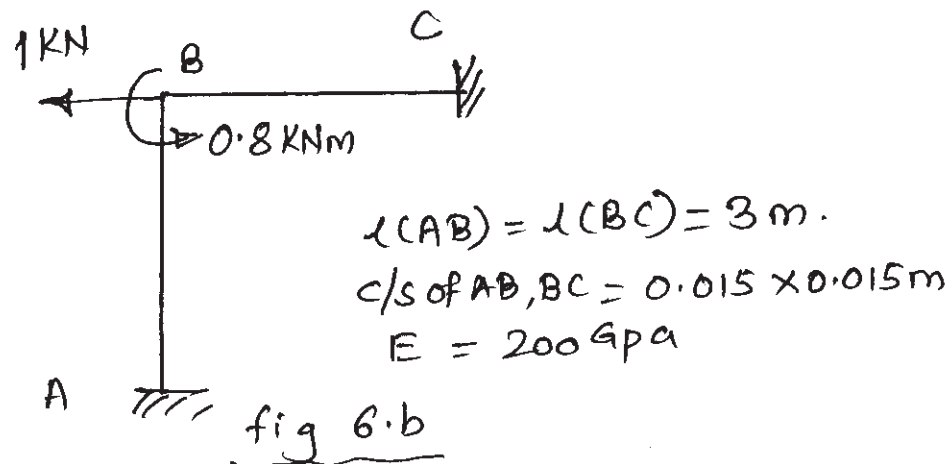 1KN
B
C
0.8 KNm
l(AB) = l(BC) = 3 m.
c/s of AB, BC = 0.015 x 0.015m
E = 200 Gpa
A
fig 6.b